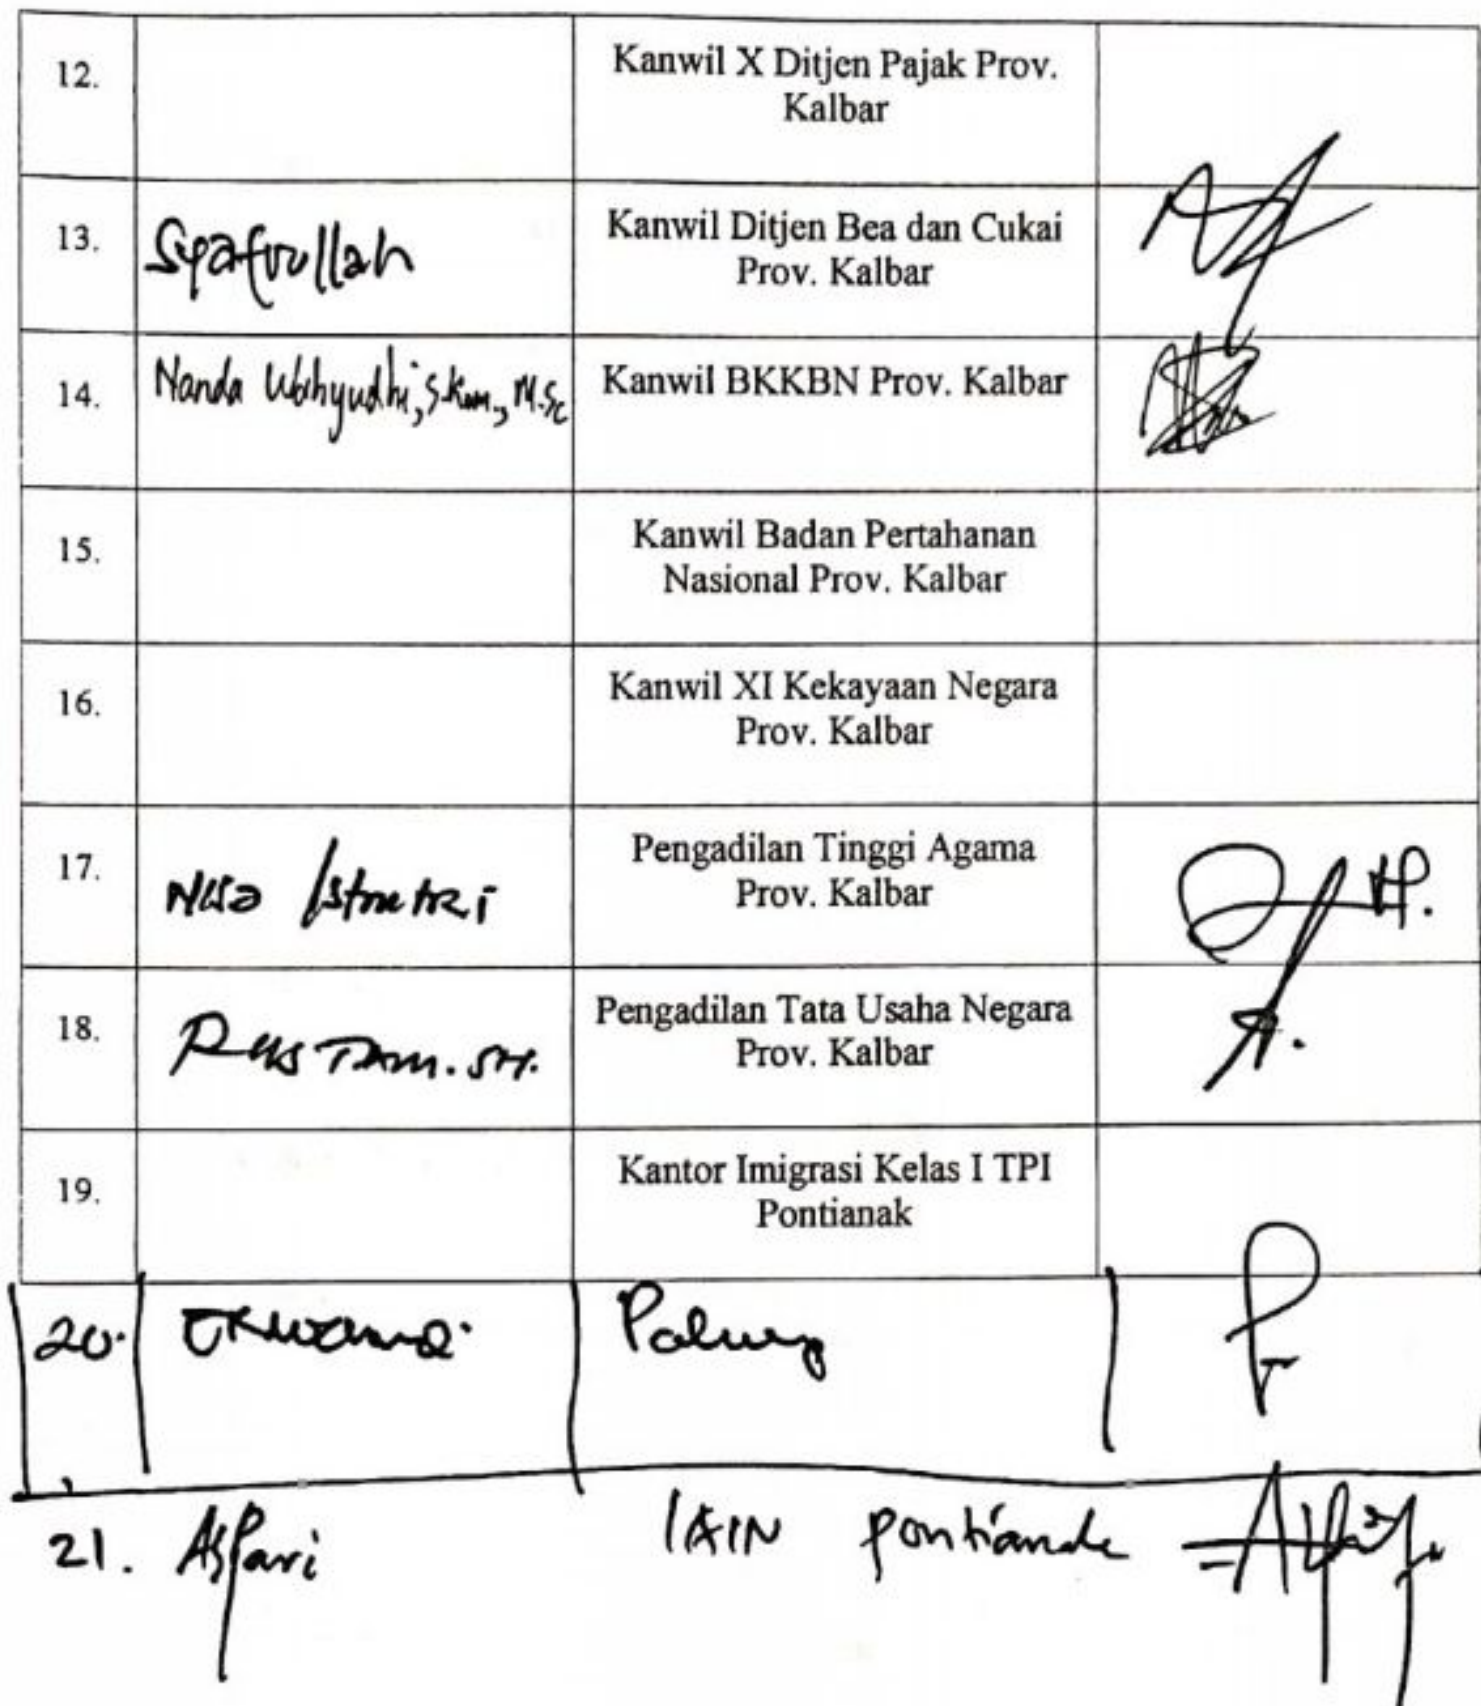 12.
Kanwil X Ditjen Pajak Prov.
Kalbar
13.
Syafrullah
Kanwil Ditjen Bea dan Cukai
Prov. Kalbar
14.
Nanda Wahyudhi, S.Kom., M.Sc
Kanwil BKKBN Prov. Kalbar
15.
Kanwil Badan Pertahanan
Nasional Prov. Kalbar
16.
Kanwil XI Kekayaan Negara
Prov. Kalbar
17.
Pengadilan Tinggi Agama
Prov. Kalbar
18.
RUSTAM. SH.
Pengadilan Tata Usaha Negara
Prov. Kalbar
19.
Kantor Imigrasi Kelas I TPI
Pontianak
20.
21. Aspari IAIN pontianak